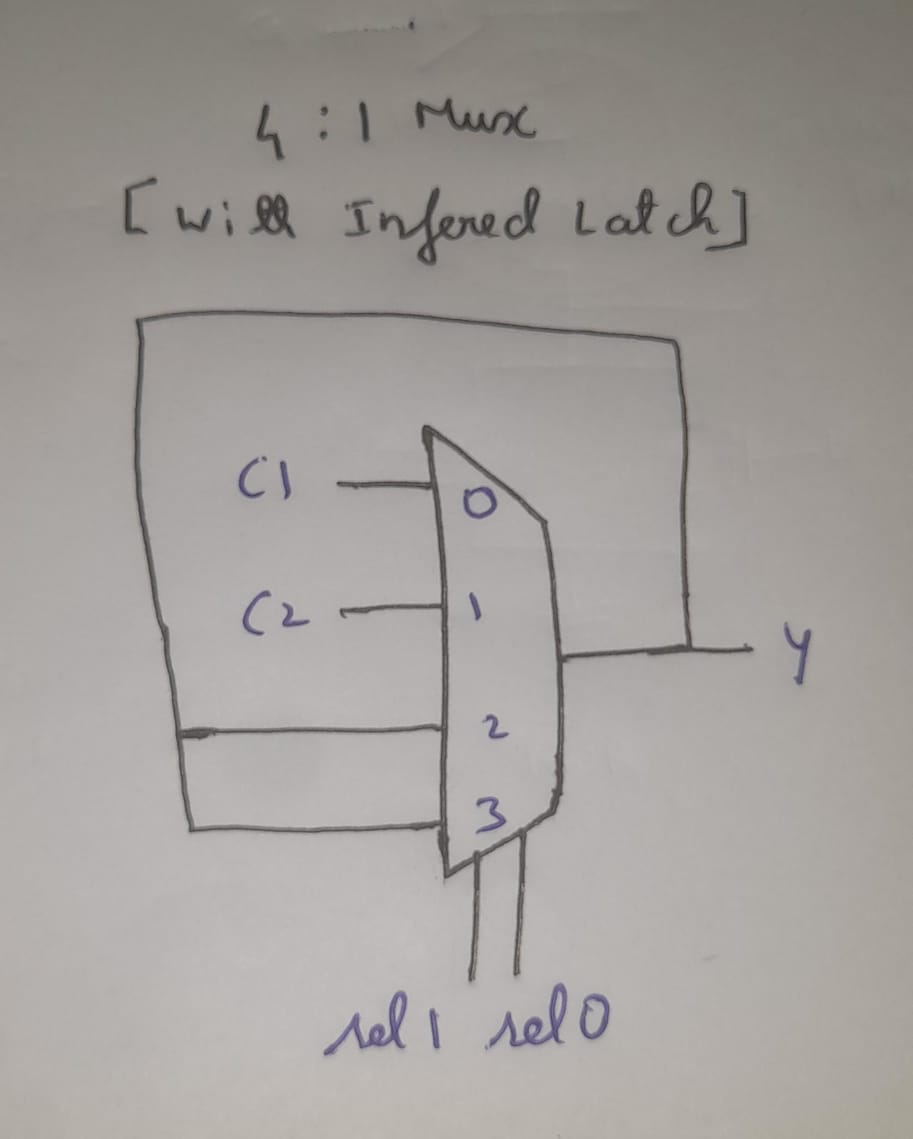 4 : 1 Mux
[ will Infered Latch]
C1
0
C2
1
y
2
3
sel1 sel0